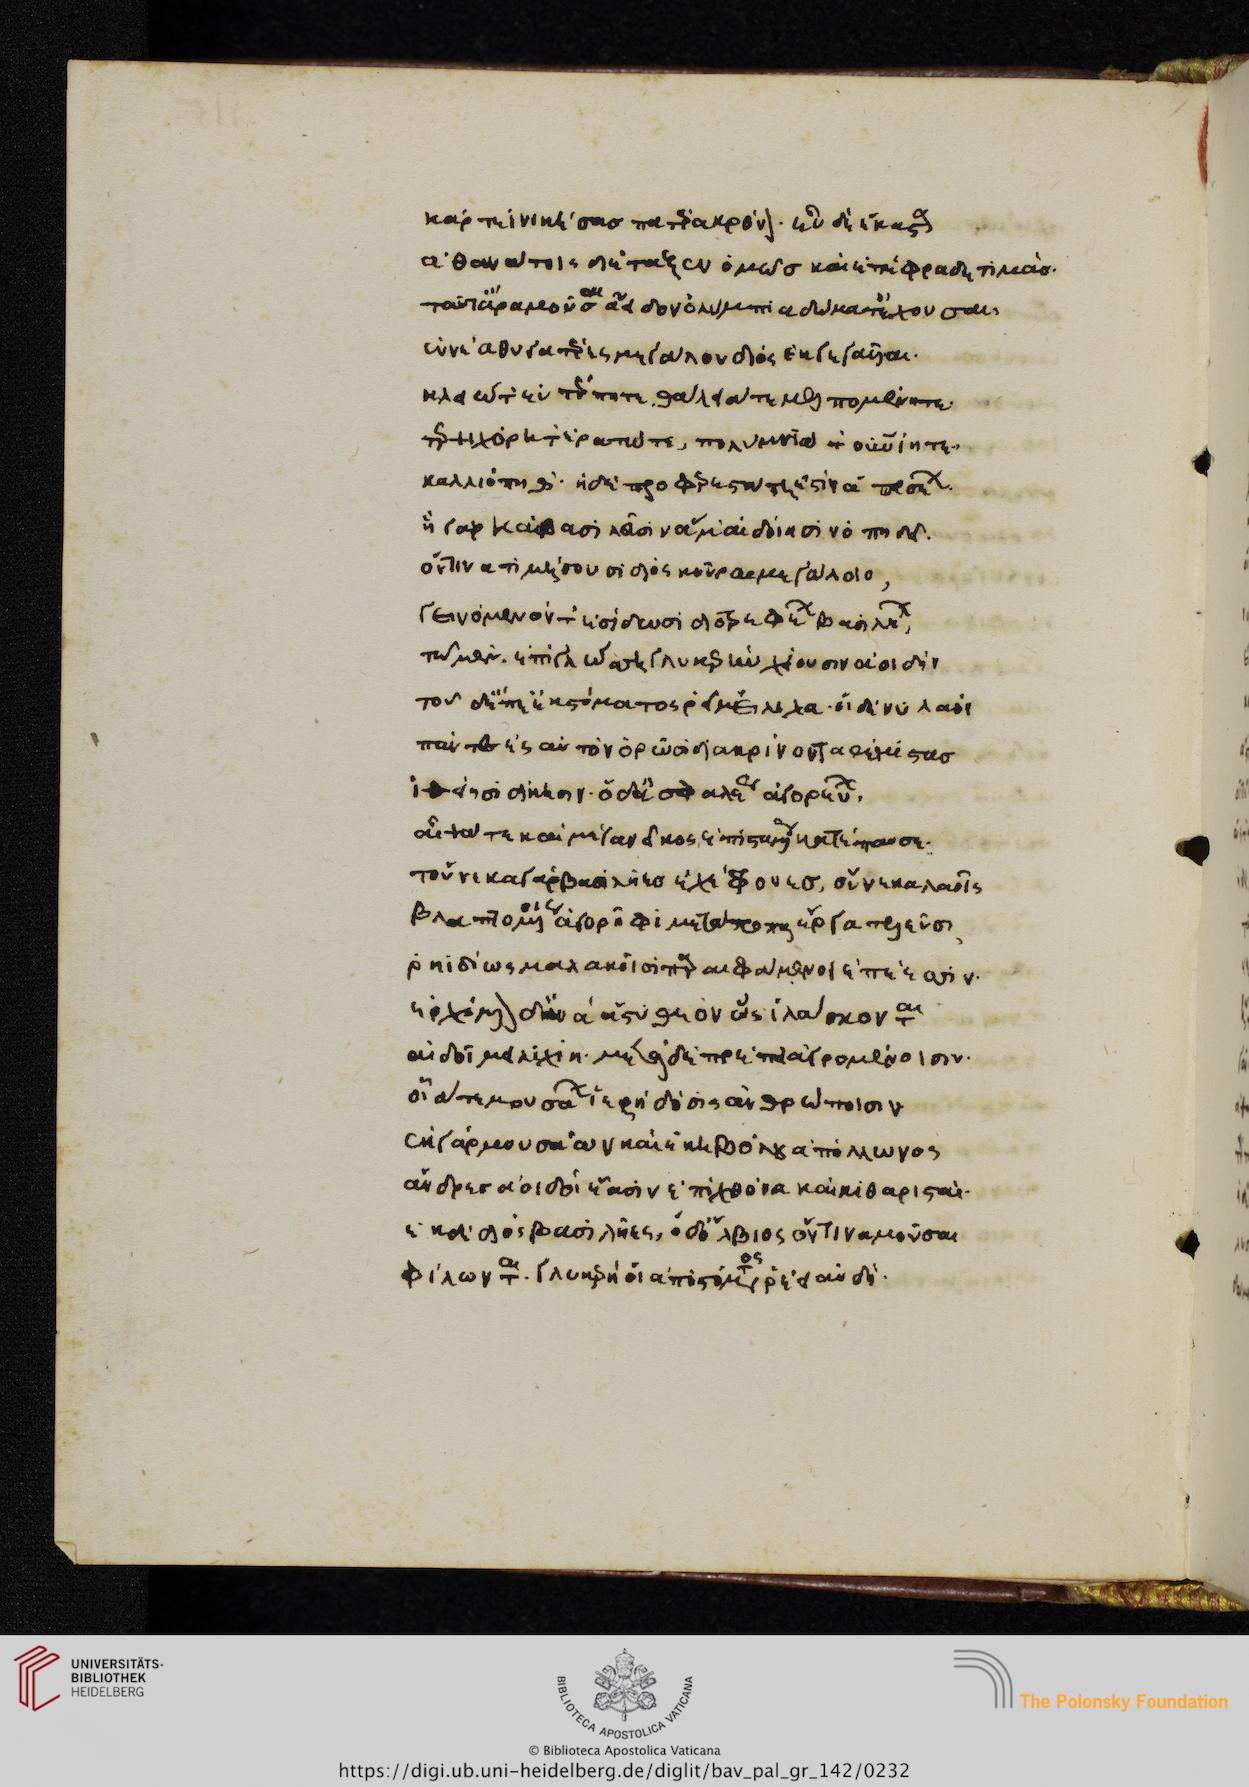 κάρτει νικήσας πατέρα κρόνον· εὖ δὲ ἕκαστα
ἀθανάτοις διέταξεν ὁμῶς καὶ ἐπέφραδε τιμάς·
ταῦτ' ἄρα μοῦσαι ἄειδον ὀλύμπια δώματ' ἔχουσαι,
ἐννέα θυγατέρες μεγάλου διὸς ἐκγεγαυῖαι·
κλειώ τ' εὐτέρπη τε θάλειά τε μελπομένη τε·
τερψιχόρη τ' ἐρατώ τε, πολύμνιά τ' οὐρανίη τε·
καλλιόπη θ'· ἡ δὲ προφερεστάτη ἐστὶν ἁπασέων.
ἣ γὰρ καὶ βασιλεῦσιν ἅμ' αἰδοίοισιν ὀπηδεῖ.
ὅντινα τιμήσουσι διὸς κοῦραι μεγάλοιο,
γεινόμενόν τ' ἐσίδωσι διοτρεφέων βασιλήων,
τῷ μὲν ἐπὶ γλώσσῃ γλυκερὴν χέουσιν ἀοιδήν
τοῦ δ' ἔπε' ἐκ στόματος ῥεῖ μείλιχα· οἱ δέ νυ λαοὶ
πάντες ἐς αὐτὸν ὁρῶσι διακρίνοντα θέμιστας
ἰθείῃσι δίκῃσιν· ὁ δ' ἀσφαλέως ἀγορεύων,
αἶψά τε καὶ μέγα νεῖκος ἐπισταμένως κατέπαυσε·
τοὔνεκα γὰρ βασιλῆες ἐχέφρονες, οὕνεκα λαοῖς
βλαπτομένοις ἀγορῆφι μετάτροπα ἔργα τελεῦσι
ῥηϊδίως μαλακοῖσι παραιφάμενοι ἐπέεσσιν·
ἐρχόμενον δ' ἀνὰ ἄστυ θεὸν ὣς ἱλάσκονται
αἰδοῖ μειλιχίῃ· μετὰ δὲ πρέπει ἀγρομένοισιν·
οἷά τε μουσάων ἱερὴ δόσις ἀνθρώποισιν
ἐκ γὰρ μουσάων καὶ ἑκηβόλου ἀπόλλωνος
ἄνδρες ἀοιδοὶ ἔασιν ἐπὶ χθόνα καὶ κιθαρισταί·
ἐκ δὲ διὸς βασιλῆες, ὁ δ' ὄλβιος ὅντινα μοῦσαι
φίλωνται· γλυκερή οἱ ἀπὸ στόματος ῥέει αὐδή·
UNIVERSITÄTS-
BIBLIOTHEK
HEIDELBERG
BIBLIOTECA APOSTOLICA VATICANA
The Polonsky Foundation
© Biblioteca Apostolica Vaticana
https://digi.ub.uni-heidelberg.de/diglit/bav_pal_gr_142/0232